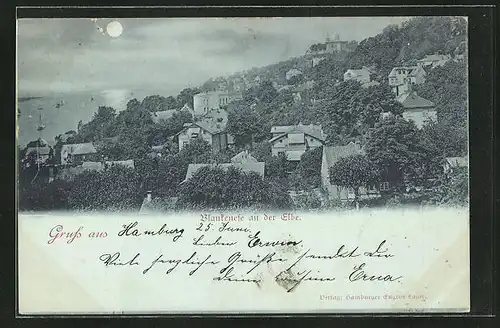 Blankenese an der Elbe.
Gruß aus Hamburg 25 Juni.
Lieber Erwin
Viel herzliche Grüße sendet Dir
Deine Erna
Verlag: Hamburger Engros-Lager,